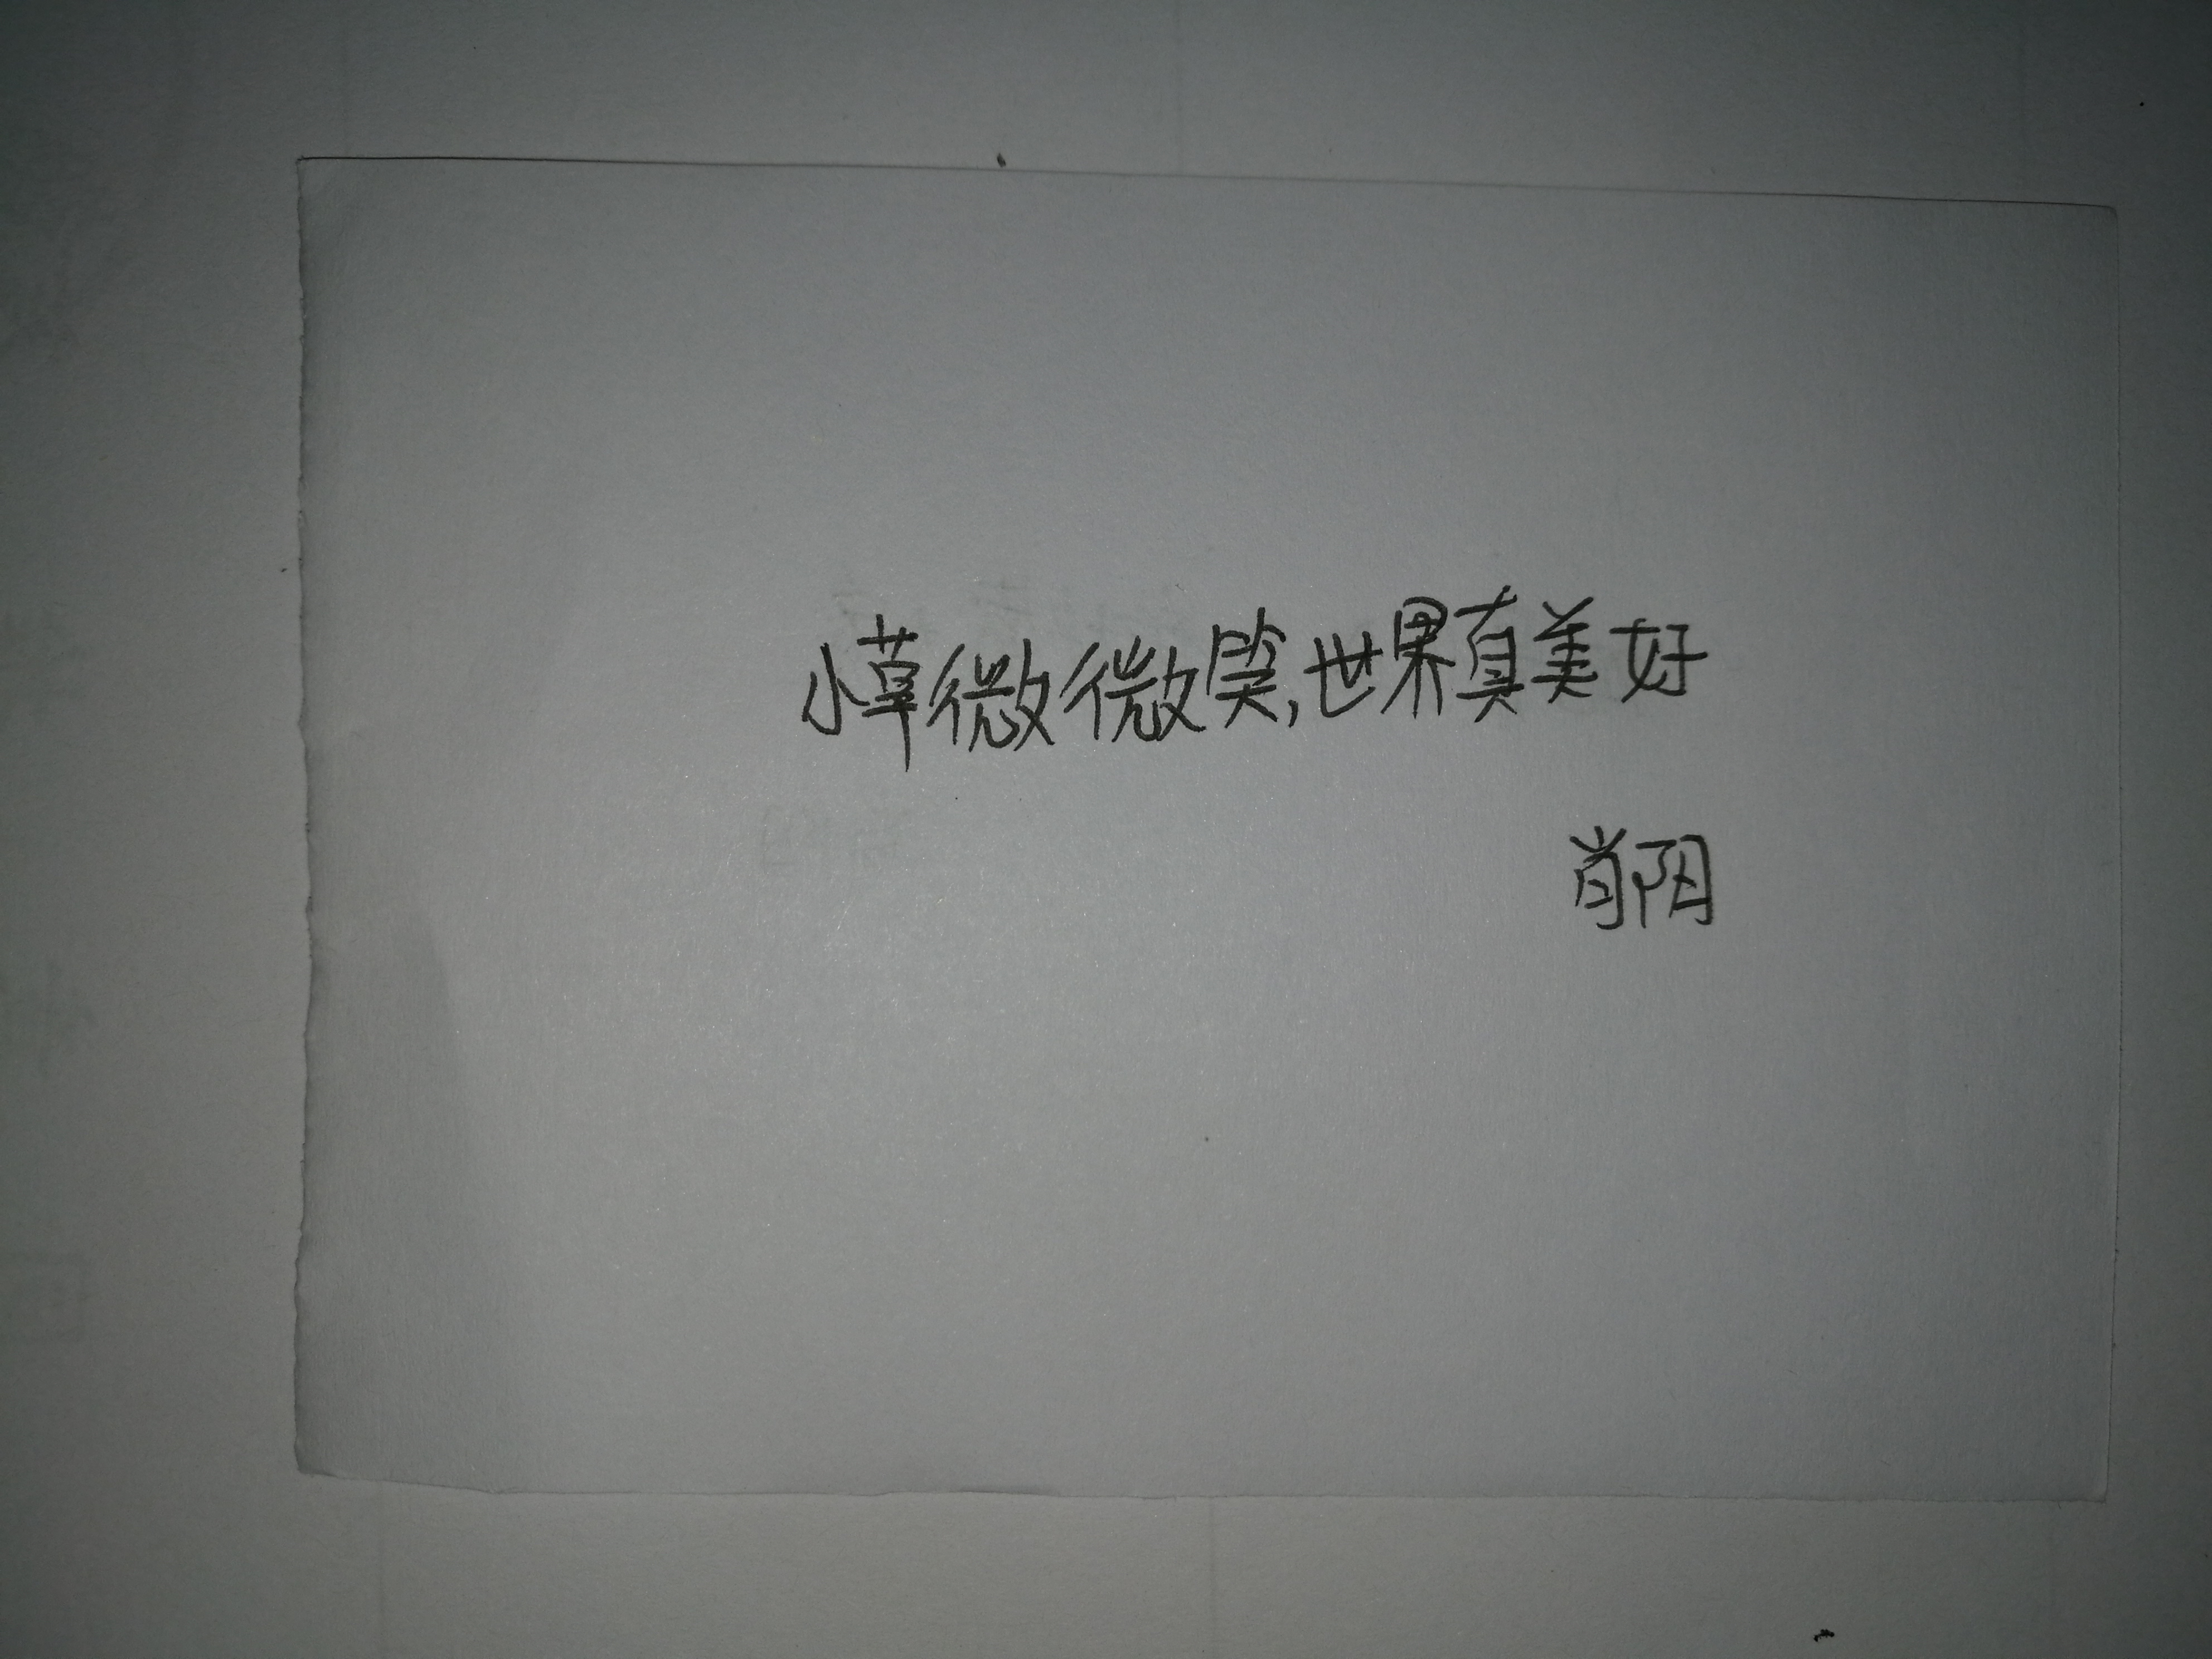 小草微微笑,世界真美好
肖阳